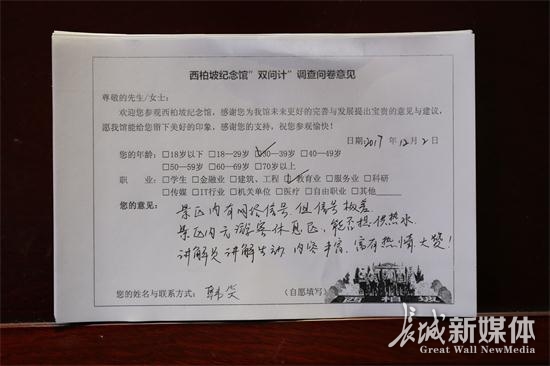 西柏坡纪念馆"双问计"调查问卷意见
尊敬的先生/女士：
欢迎您参观西柏坡纪念馆，感谢您为我馆未来更好的完善与发展提出宝贵的意见与建议，
愿我馆能给您留下美好的印象，感谢您的支持，祝您参观愉快！
日期2017年12月2日
您的年龄：□18岁以下 □18—29岁 □30—39岁 □40—49岁
□50—59岁 □60—69岁 □70岁以上
职 业：□学生 □金融业 □建筑、工程 □教育业 □服务业 □科研
□传媒 □IT行业 □机关单位 □医疗 □自由职业 □其他
您的意见：
景区内有网络信号，但信号极差
景区内无游客休息区，能否提供热水
讲解员讲解生动，内容丰富，富有热情大赞！
您的姓名与联系方式：韩笑 （自愿填写）
西柏坡
长城新媒体
Great Wall NewMedia